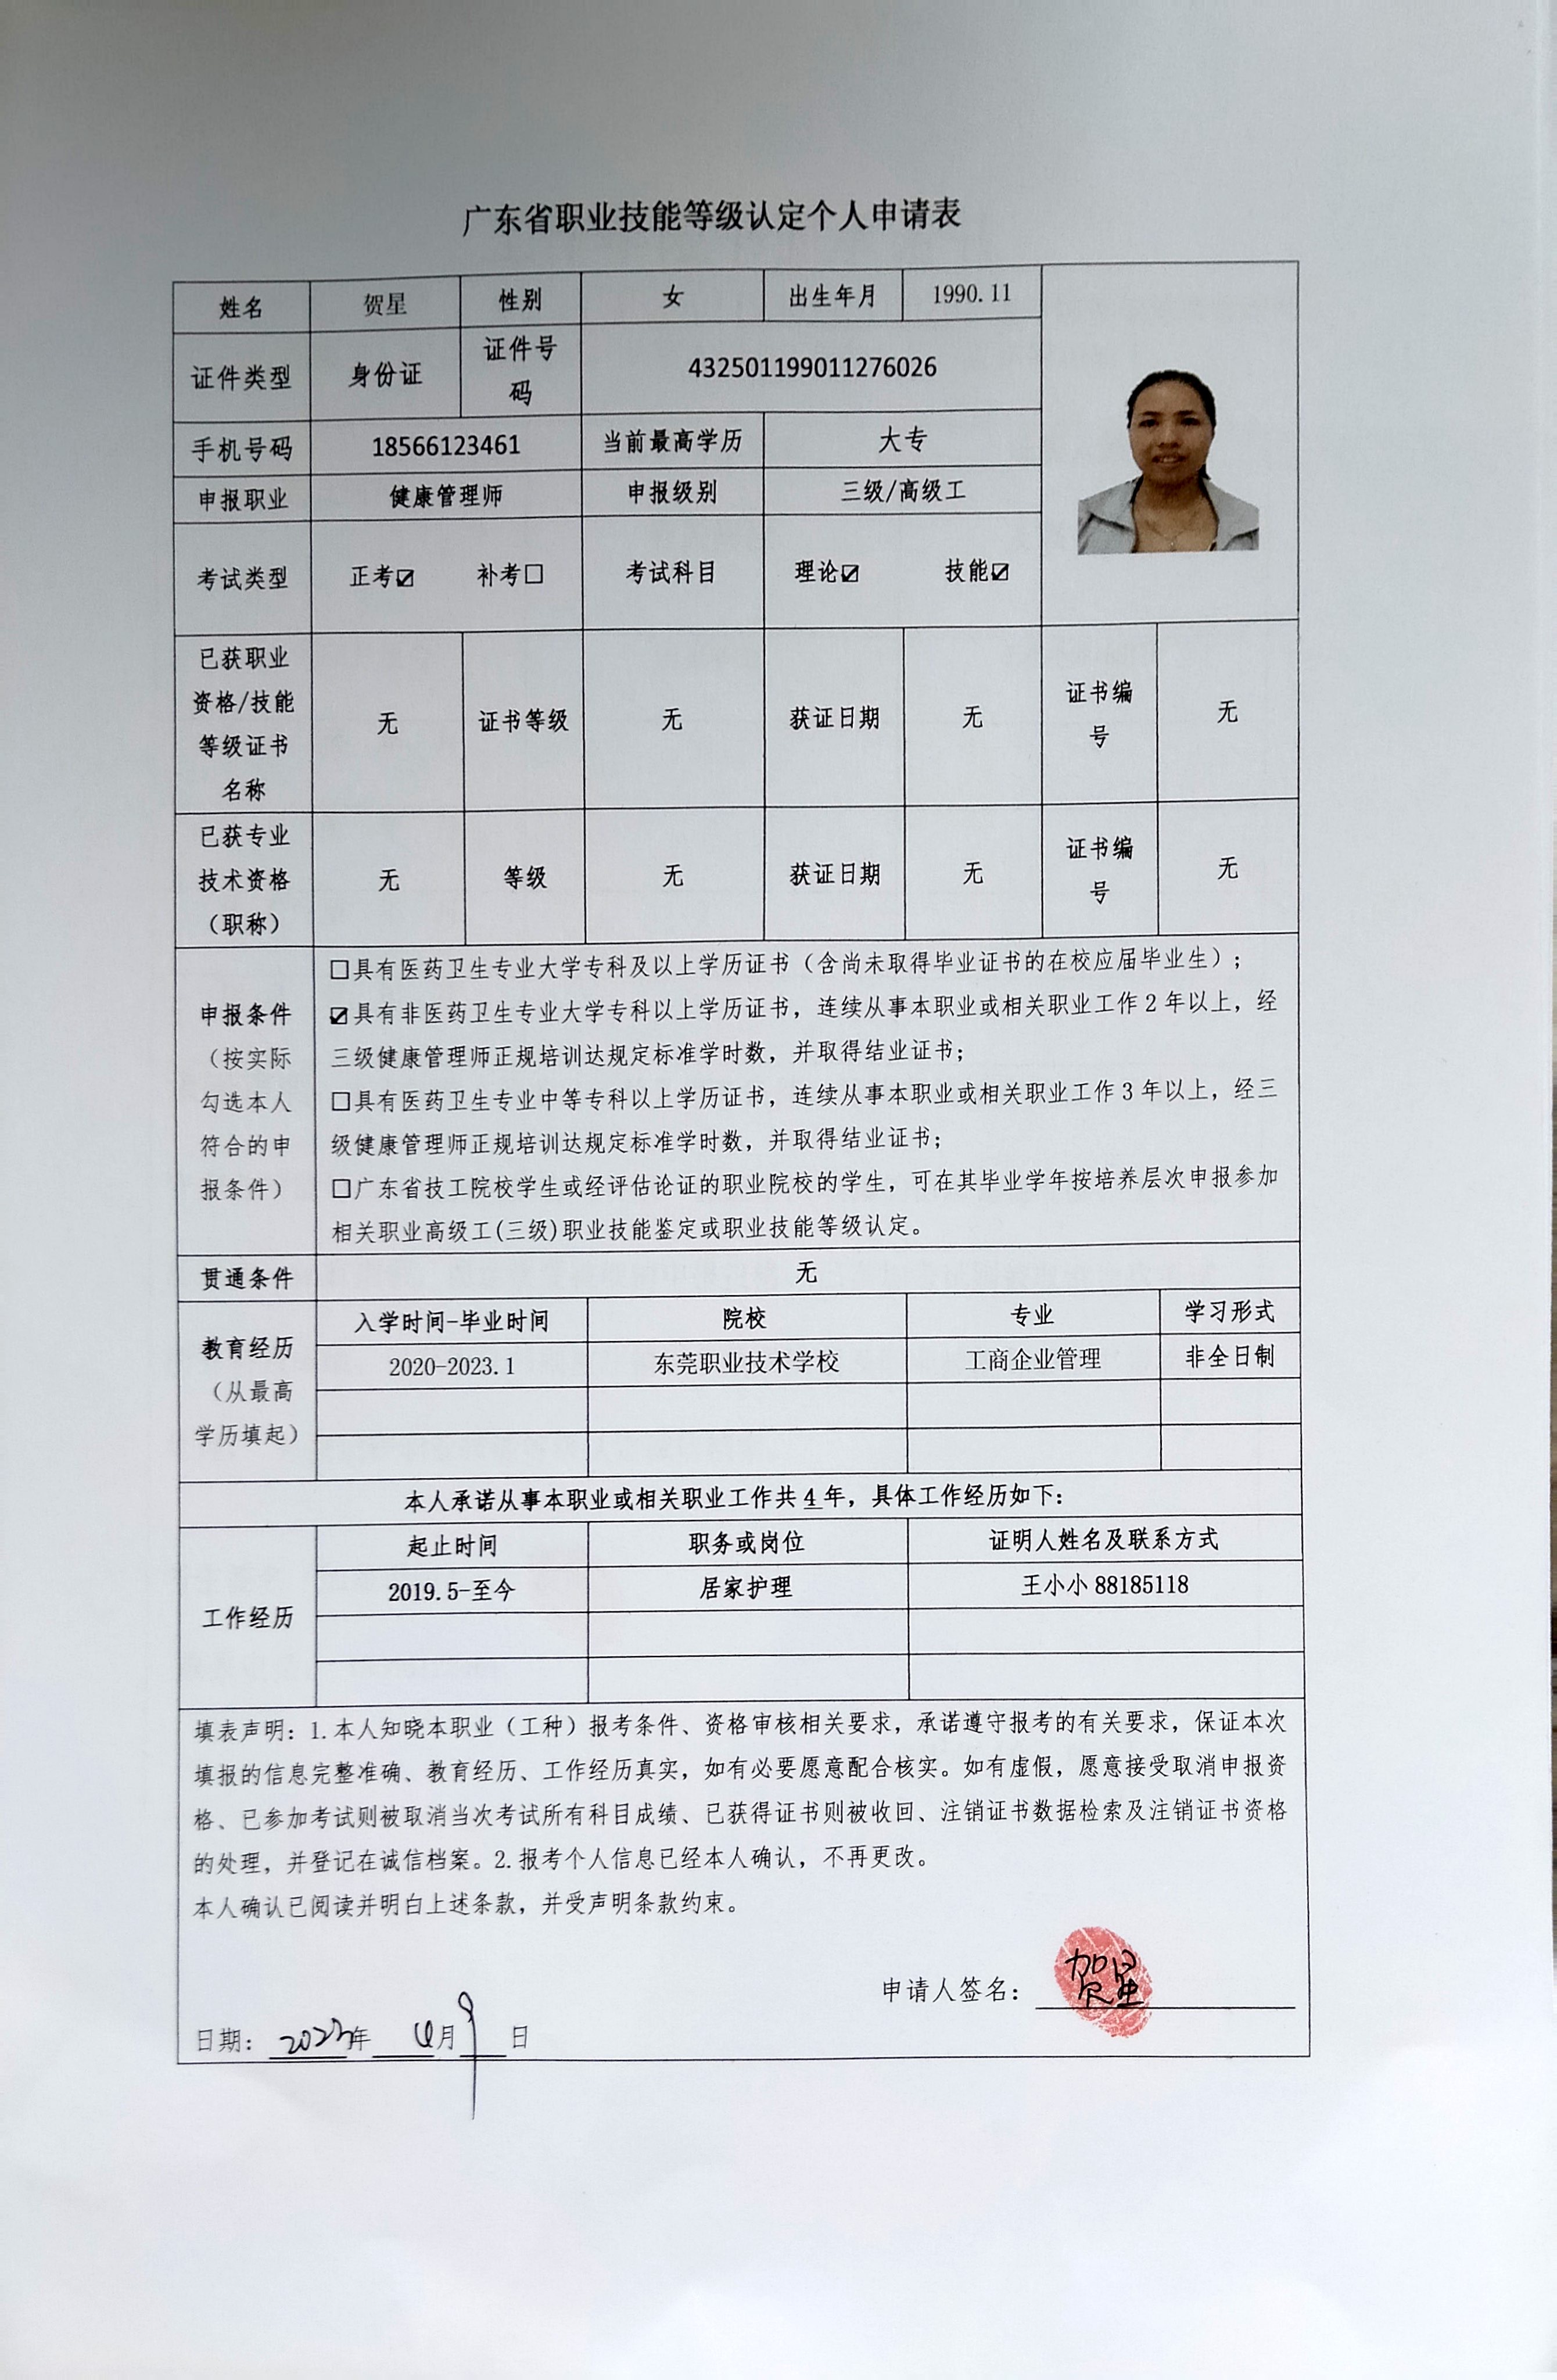 广东省职业技能等级认定个人申请表
姓名 贺星 性别 女 出生年月 1990.11
证件类型 身份证 证件号码 432501199011276026
手机号码 18566123461 当前最高学历 大专
申报职业 健康管理师 申报级别 三级/高级工
考试类型 正考☑ 补考☐ 考试科目 理论☑ 技能☑
已获职业资格/技能等级证书名称 无 证书等级 无 获证日期 无 证书编号 无
已获专业技术资格（职称） 无 等级 无 获证日期 无 证书编号 无
申报条件（按实际勾选本人符合的申报条件）
☐具有医药卫生专业大学专科及以上学历证书（含尚未取得毕业证书的在校应届毕业生）；
☑具有非医药卫生专业大学专科以上学历证书，连续从事本职业或相关职业工作2年以上，经
三级健康管理师正规培训达规定标准学时数，并取得结业证书；
☐具有医药卫生专业中等专科以上学历证书，连续从事本职业或相关职业工作3年以上，经三
级健康管理师正规培训达规定标准学时数，并取得结业证书；
☐广东省技工院校学生或经评估论证的职业院校的学生，可在其毕业学年按培养层次申报参加
相关职业高级工(三级)职业技能鉴定或职业技能等级认定。
贯通条件 无
教育经历（从最高学历填起）
入学时间-毕业时间 院校 专业 学习形式
2020-2023.1 东莞职业技术学校 工商企业管理 非全日制
本人承诺从事本职业或相关职业工作共4年，具体工作经历如下：
工作经历
起止时间 职务或岗位 证明人姓名及联系方式
2019.5-至今 居家护理 王小小 88185118
填表声明：1.本人知晓本职业（工种）报考条件、资格审核相关要求，承诺遵守报考的有关要求，保证本次
填报的信息完整准确、教育经历、工作经历真实，如有必要愿意配合核实。如有虚假，愿意接受取消申报资
格、已参加考试则被取消当次考试所有科目成绩、已获得证书则被收回、注销证书数据检索及注销证书资格
的处理，并登记在诚信档案。2.报考个人信息已经本人确认，不再更改。
本人确认已阅读并明白上述条款，并受声明条款约束。
申请人签名：贺星
日期：2023年 4月9日